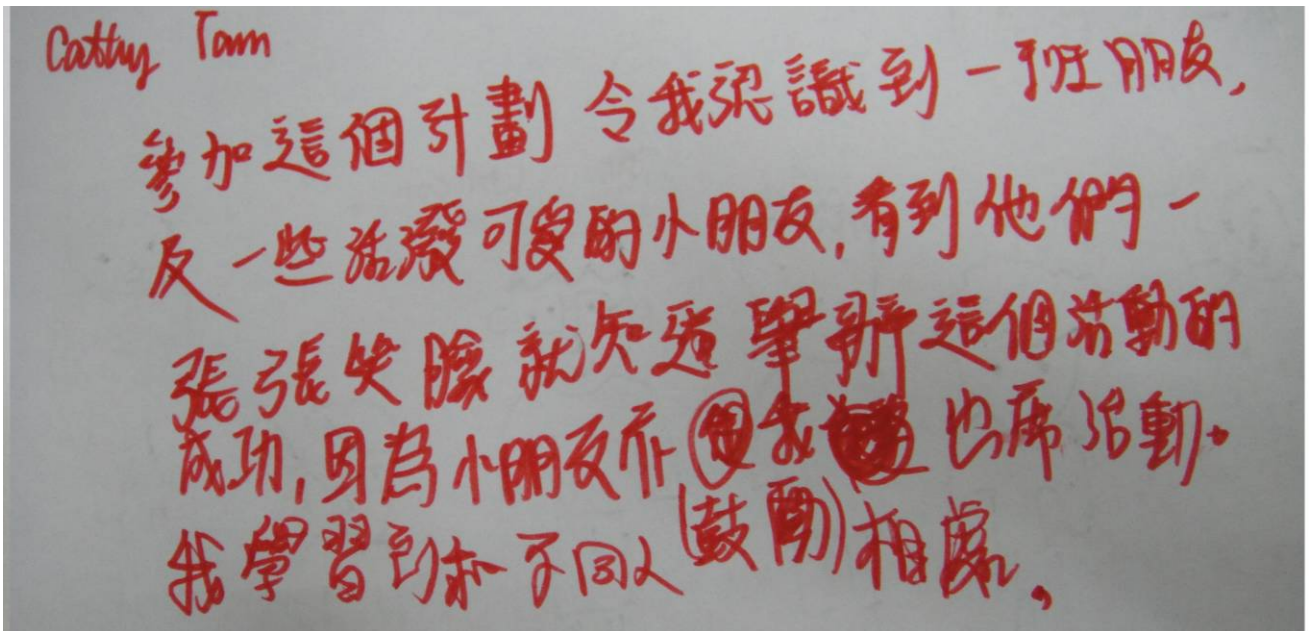 Cathy Tam
參加這個計劃令我認識到一班朋友,
及一些活潑可愛的小朋友,看到他們一
張張笑臉就知道舉辦這個活動的
成功,因為小朋友亦我出席活動。
我學習到和不同人(鼓勵)相處。